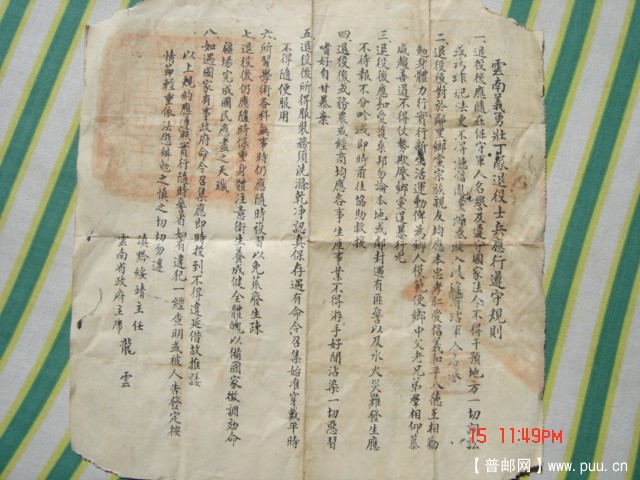 雲南義勇壯丁隊退役士兵應行遵守規則
一、退役後應隨在保守軍人名譽及遵守國家法令不得干預地方一切詞訟
犯法更不得
二、退役後對於鄰里鄉黨宗族親友均應本忠孝仁愛信義和平八德互相勸
勉身體力行實行新生活運動俾為鄉人模範使鄉中父老兄弟羣相仰慕
咸趨善道不得仗勢欺壓鄉黨逞暴行兇
三、退役後應知愛護桑邦勿論本地或鄰封遇有匪警以及水火災難發生應
不待報不分畛域即時前往協助救援
四、退役後或務農或經商均應各事生產事業不得游手好閒沾染一切惡習
嗜好自甘暴棄
五、退役後所得服裝務須洗滌乾净認真保存遇有命令召集始准穿戴平時
不得隨便服用
六、所習學術各科無事時仍應隨時復習以免荒廢生疎
七、退役後仍應隨時保重身體注意衛生養成健全體魄以備國家徵調効命
疆場完成國民應盡之天職
八、如遇國家有事政府命令召集應即時投到不得遲延借故推諉
以上規約應遵照實行隨時奉省如有違犯一經查明或被人告發定按
情節輕重依法懲辦凜之慎之切切勿違
滇黔綏靖主任
雲南省政府主席 龍雲
15 11:49PM
【普邮网】www.puu.cn